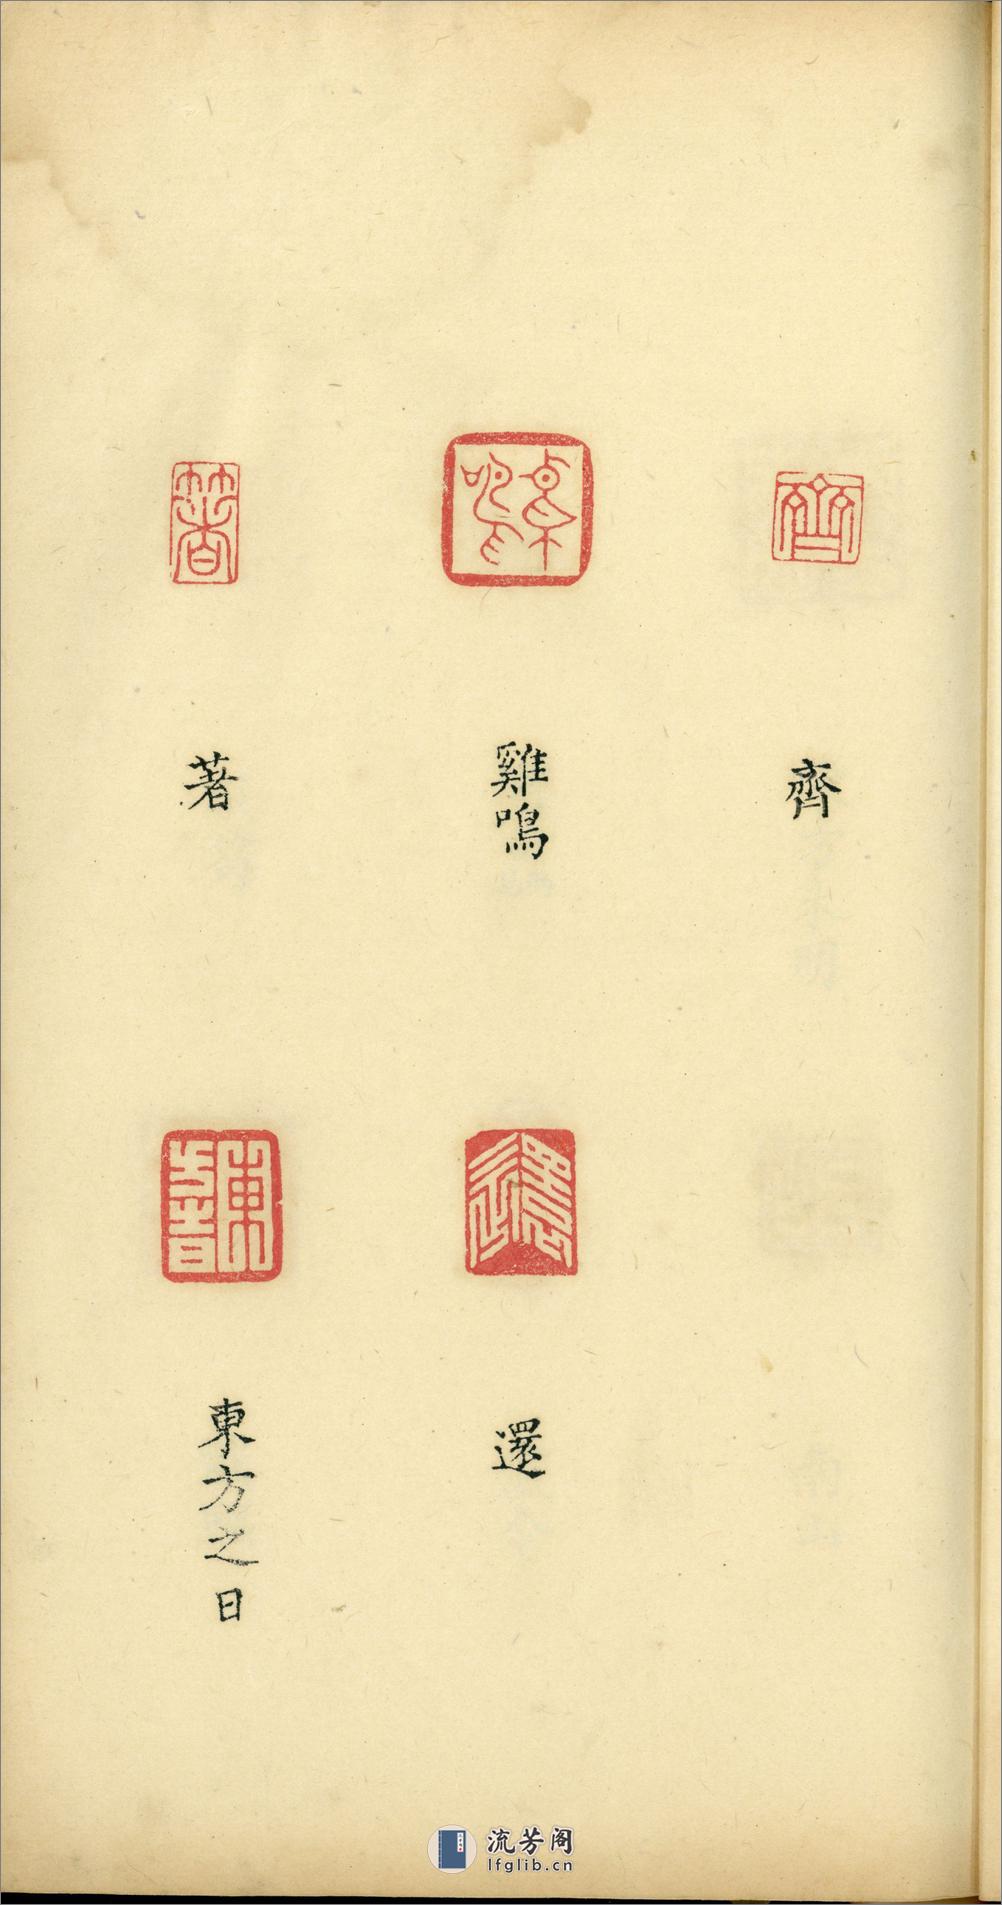 齊
雞鳴
還
著
東方之日
流芳阁
lfglib.cn